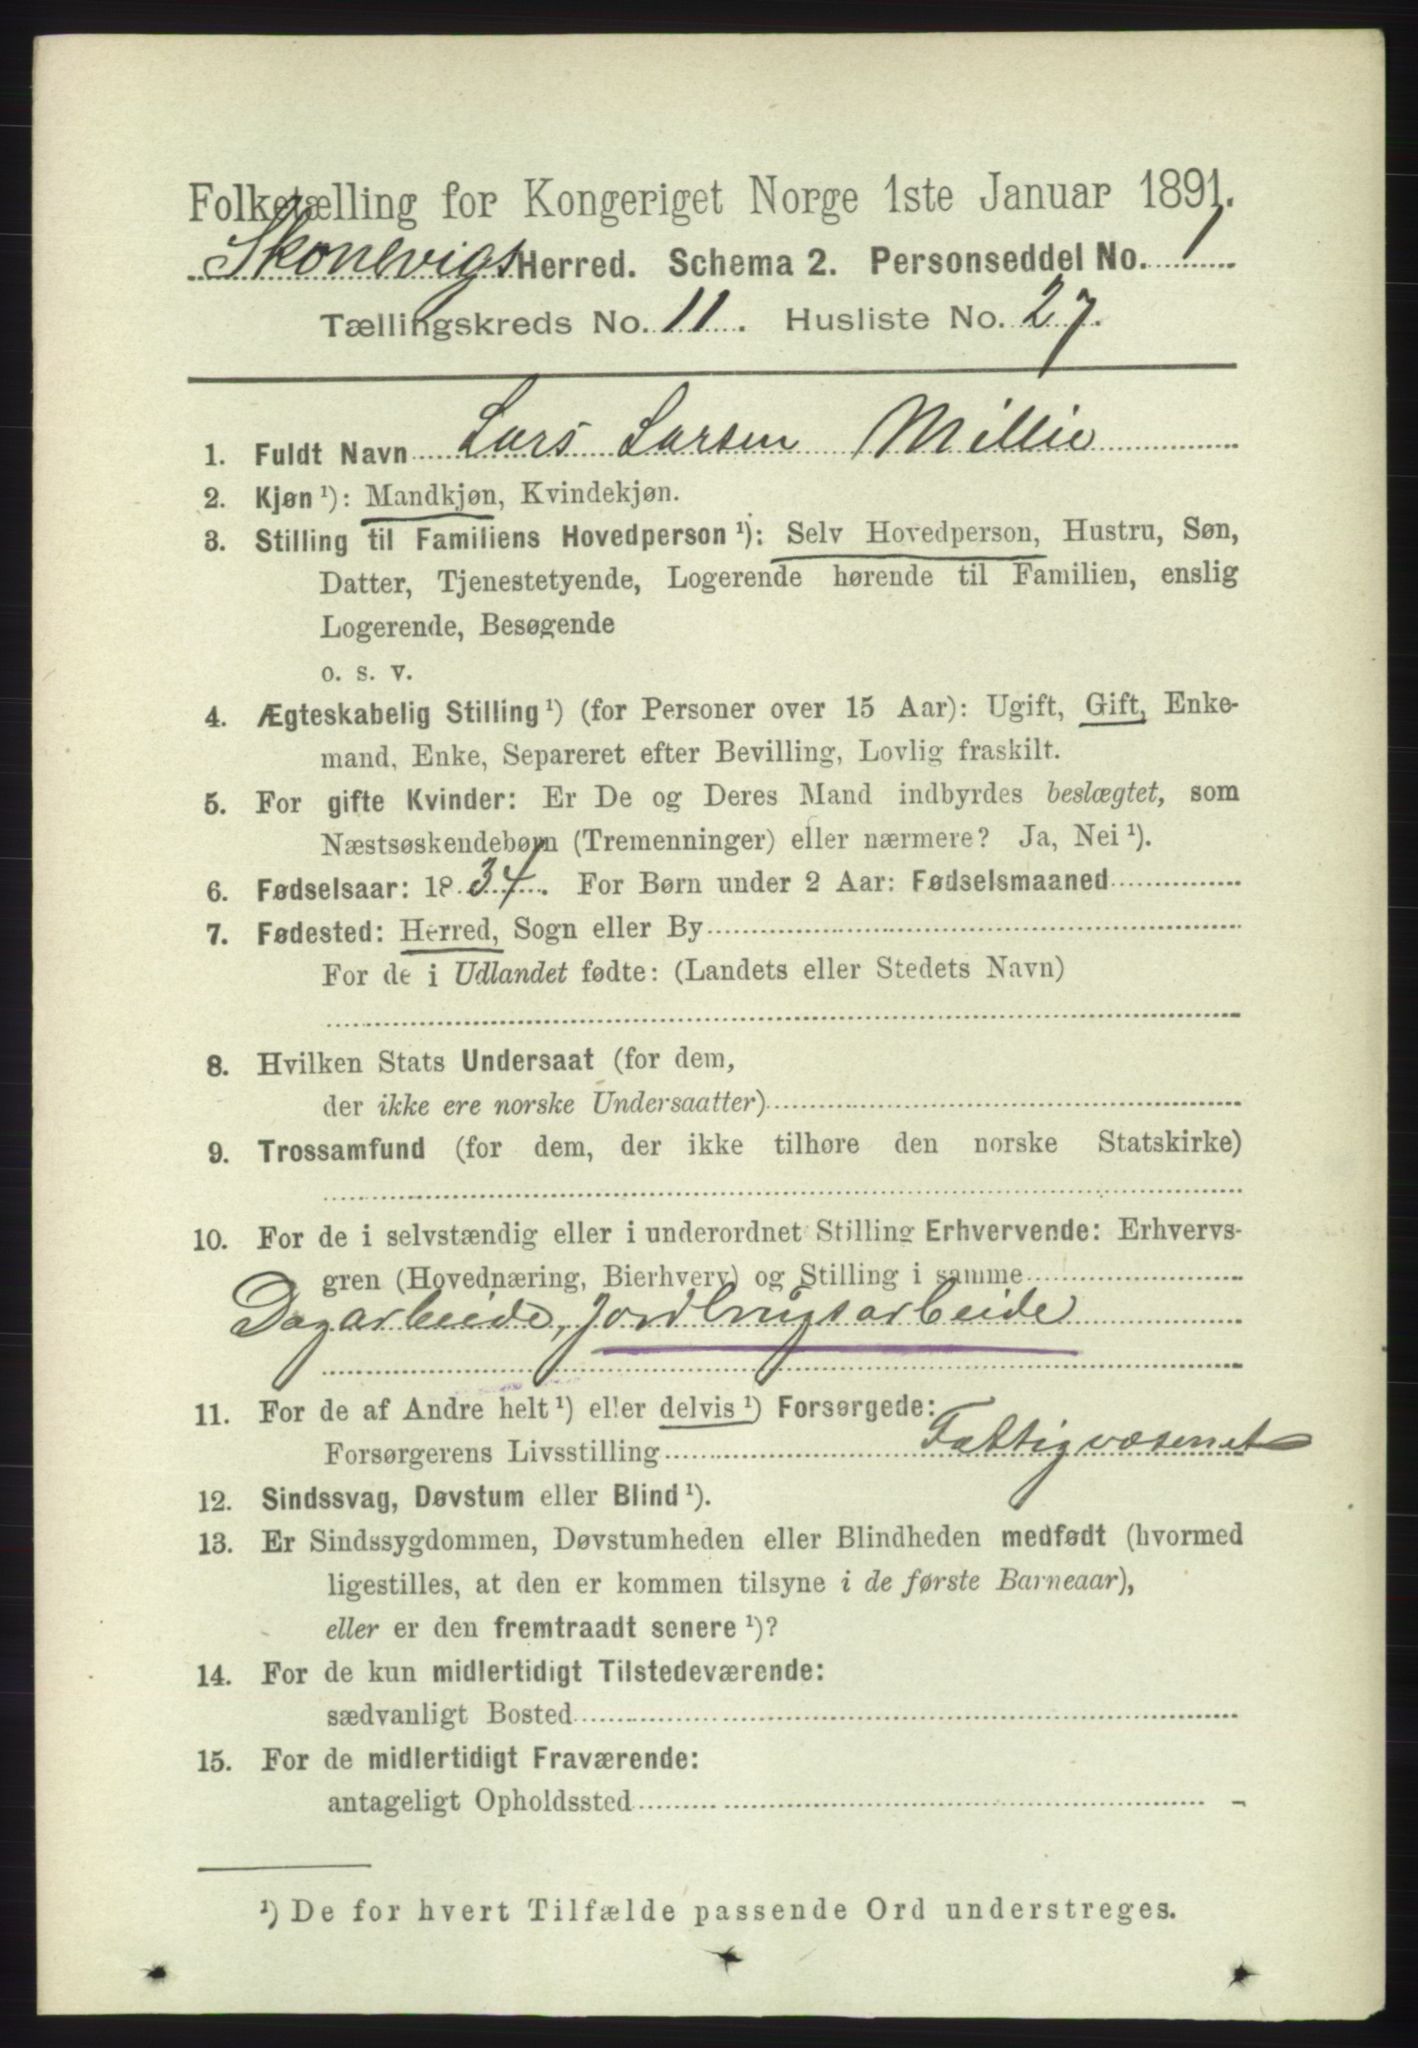 Folketælling for Kongeriget Norge 1ste Januar 1891.
Skonevigs Herred. Schema 2. Personseddel No. 1
Tællingskreds No. 11. Husliste No. 27.
1. Fuldt Navn Lars Larsen Millie
2. Kjøn ¹): Mandkjøn, Kvindekjøn.
3. Stilling til Familiens Hovedperson ¹): Selv Hovedperson, Hustru, Søn,
Datter, Tjenestetyende, Logerende hørende til Familien, enslig
Logerende, Besøgende
o. s. v.
4. Ægteskabelig Stilling ¹) (for Personer over 15 Aar): Ugift, Gift, Enke-
mand, Enke, Separeret efter Bevilling, Lovlig fraskilt.
5. For gifte Kvinder: Er De og Deres Mand indbyrdes beslægtet, som
Næstsøskendebørn (Tremenninger) eller nærmere? Ja, Nei ¹).
6. Fødselsaar: 1834. For Børn under 2 Aar: Fødselsmaaned
7. Fødested: Herred, Sogn eller By
For de i Udlandet fødte: (Landets eller Stedets Navn)
8. Hvilken Stats Undersaat (for dem,
der ikke ere norske Undersaatter)
9. Trossamfund (for dem, der ikke tilhøre den norske Statskirke)
10. For de i selvstændig eller i underordnet Stilling Erhvervende: Erhvervs-
gren (Hovednæring, Bierhverv) og Stilling i samme
Dagarbeide, Jordbrugsarbeide
11. For de af Andre helt ¹) eller delvis ¹) Forsørgede:
Forsørgerens Livsstilling Fattigvæsenet
12. Sindssvag, Døvstum eller Blind ¹).
13. Er Sindssygdommen, Døvstumheden eller Blindheden medfødt (hvormed
ligestilles, at den er kommen tilsyne i de første Barneaar),
eller er den fremtraadt senere ¹)?
14. For de kun midlertidigt Tilstedeværende:
sædvanligt Bosted
15. For de midlertidigt Fraværende:
antageligt Opholdssted
¹) De for hvert Tilfælde passende Ord understreges.